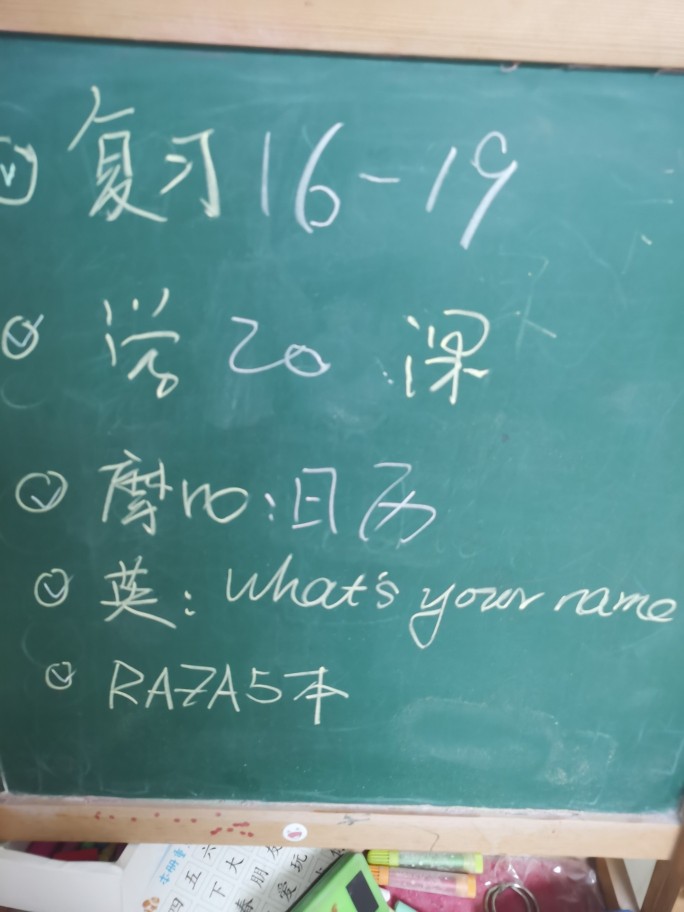 复习16-19
学20 课
摩no:日历
英: What's your name
RAZA5本
四 五 六
下 大
春 朋 友
爱 玩